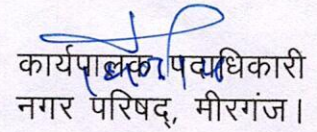 कार्यपालक पदाधिकारी
नगर परिषद्, मीरगंज।